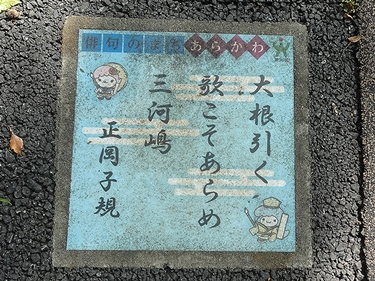 俳句のまちあらかわ
大根引く
歌こそあらめ
三河嶋
正岡子規